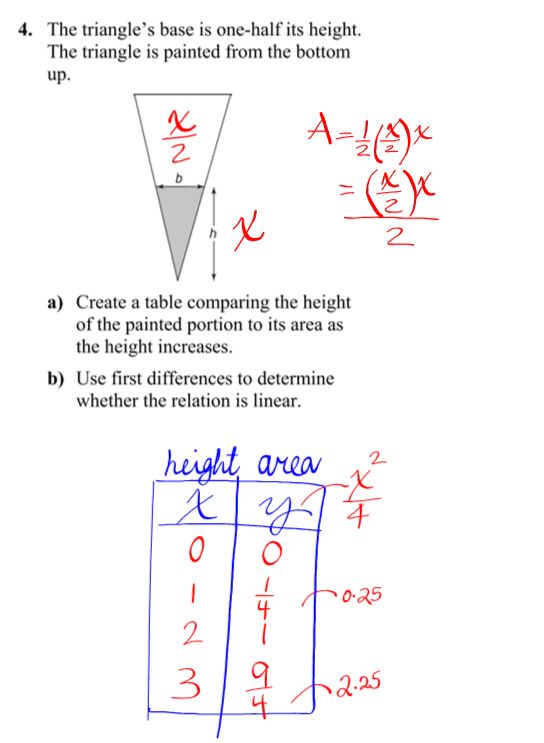 4. The triangle's base is one-half its height.
The triangle is painted from the bottom
up.
x/2
A = 1/2 (x/2) x
= (x/2) x
2
b
h
x
a) Create a table comparing the height
of the painted portion to its area as
the height increases.
b) Use first differences to determine
whether the relation is linear.
height area
x y x²/4
0 0
1 1/4 0.25
2 1
3 9/4 2.25